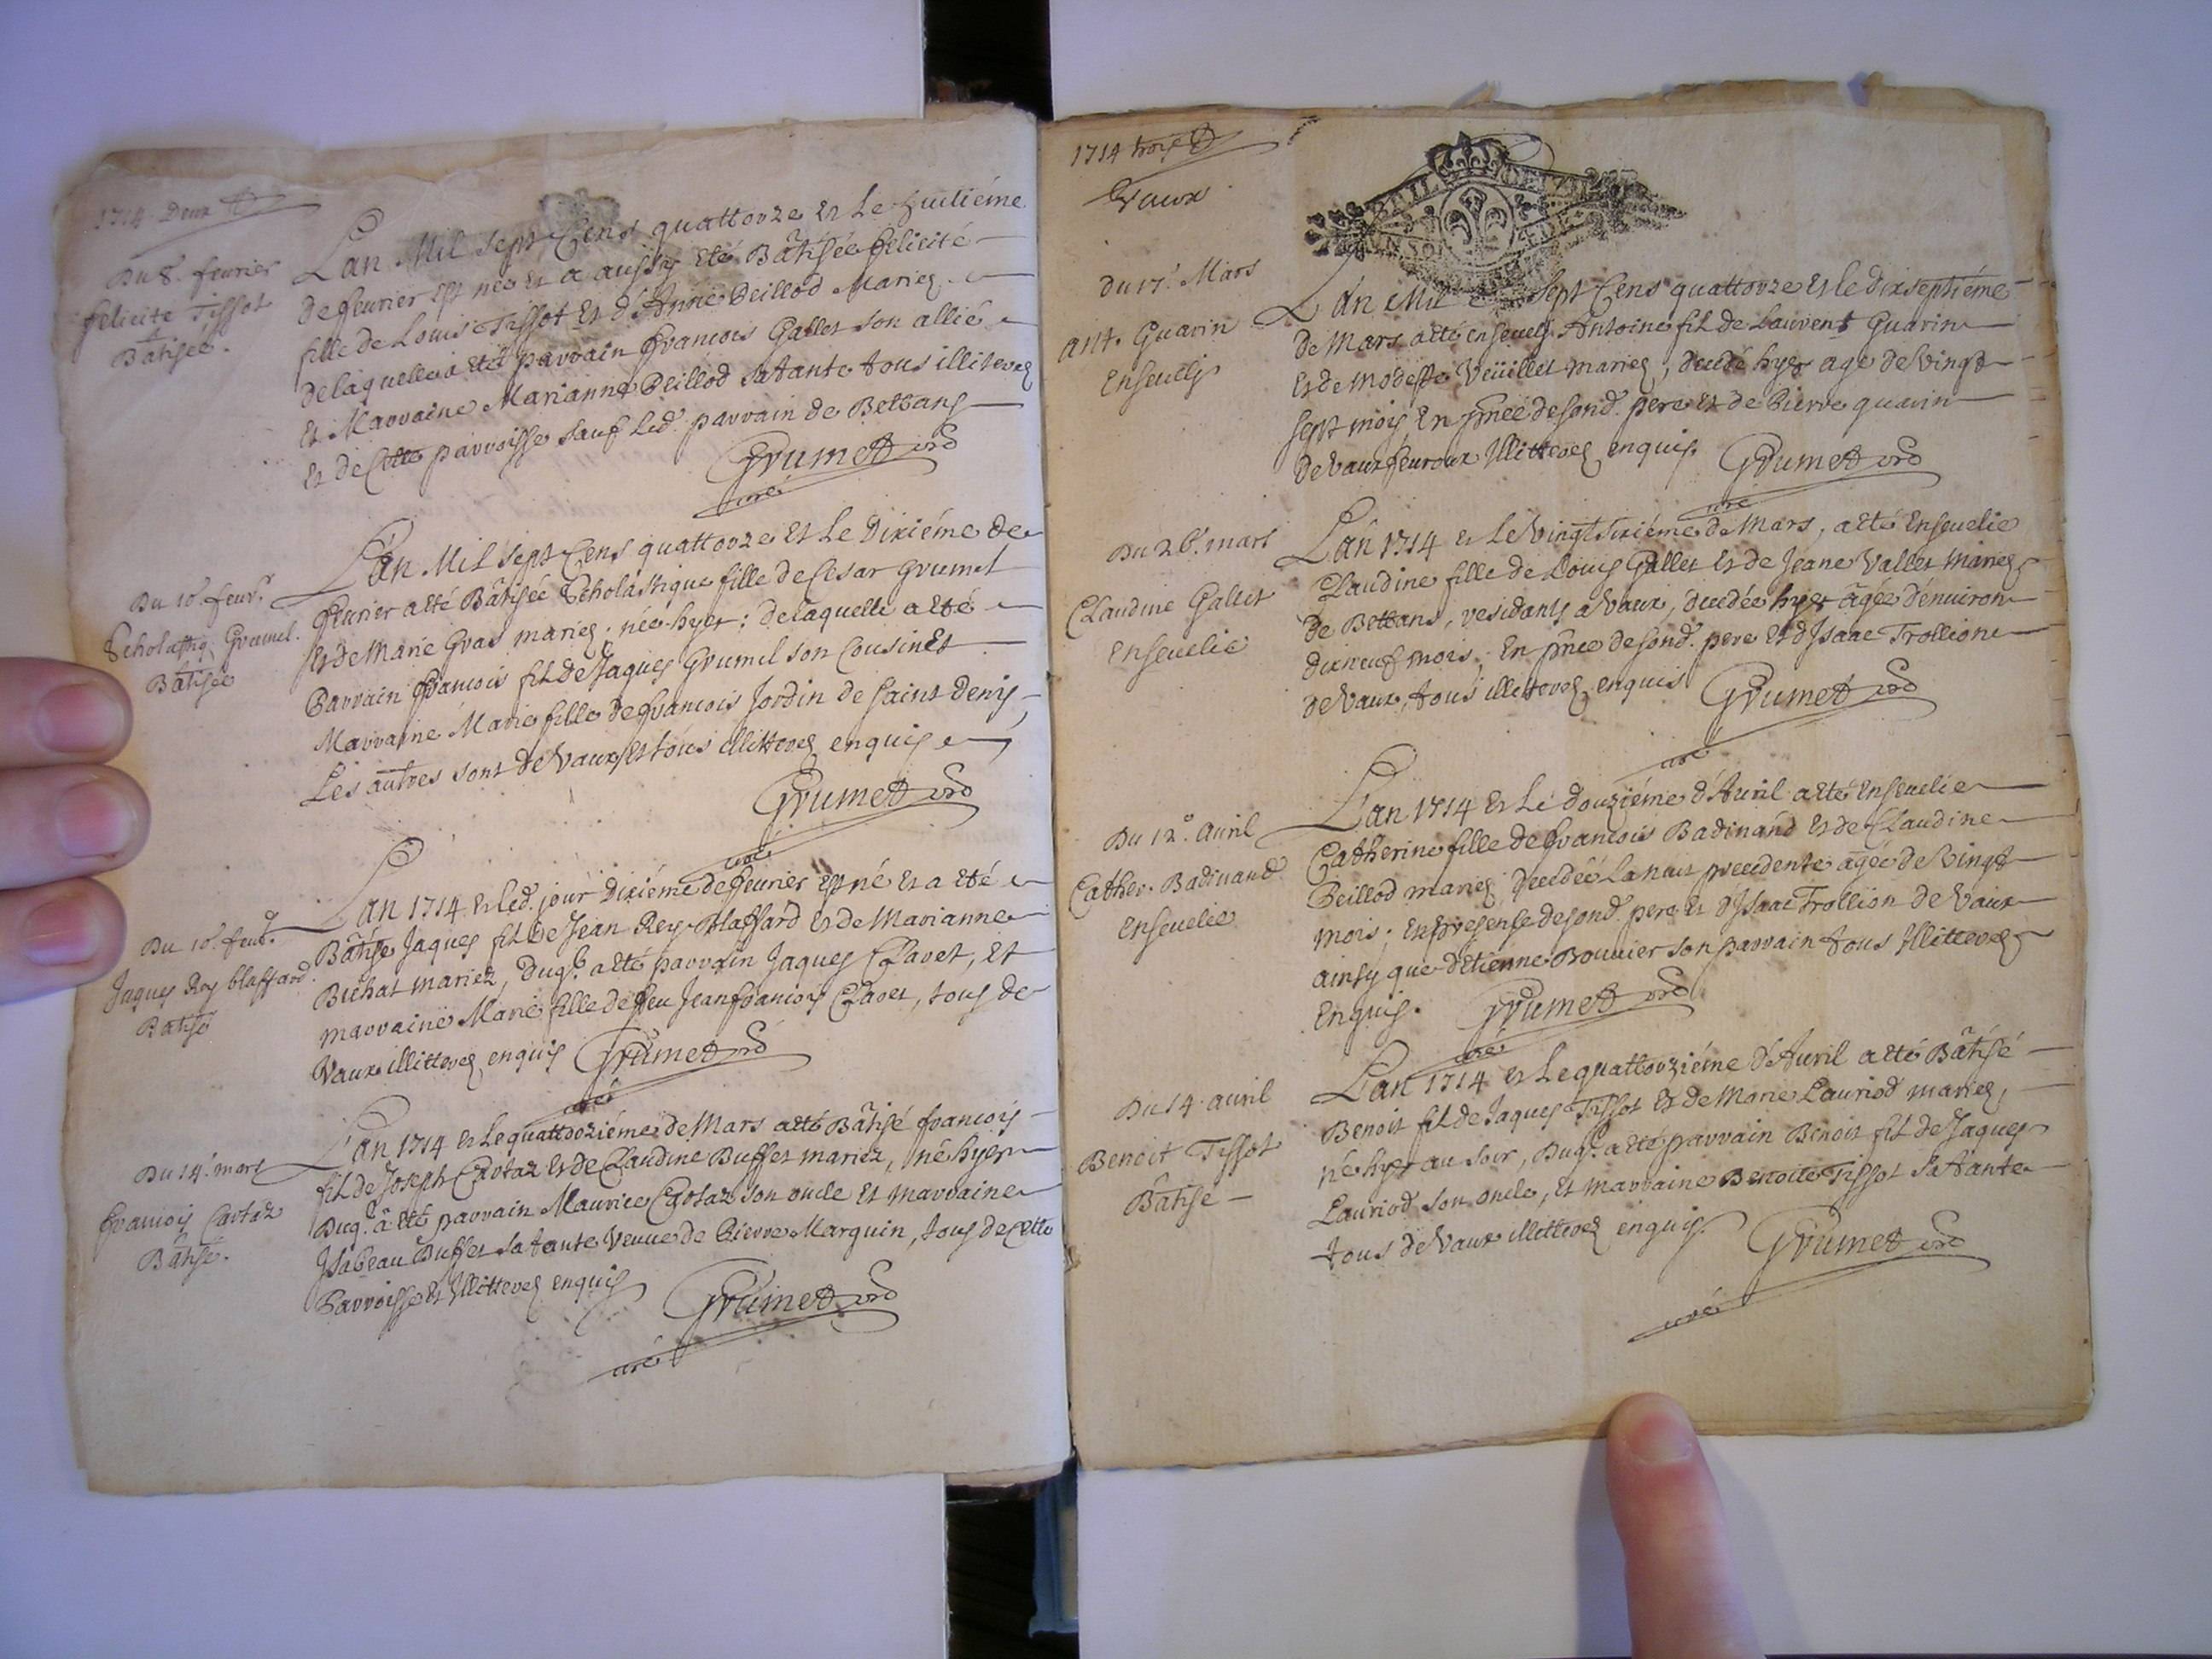 1714 Deux
Du 8. feurier
felicité Tissot
Bâtisée.
Lan Mil sept Cens quattorze et Le huitiéme
de feurier est née et a aussy eté Bâtisée felicité
fille de Louis Tissot et d'Anne Beillod Mariez
de laquelle a eté parrain francois Gallet son allié
et Marraine Marianne Beillod sa tante tous illiterez
et de Cette parroisse sauf led. parrain de Bettans
Grumet
curé
Du 10. feur.
Scholastiq. Grumel.
Bâtisée
Lan Mil sept Cens quattorze et Le Dixiéme de
feurier a eté Bâtisée Scholastique fille de Cesar Grumel
et de Marie Gras mariez. née hyer: de laquelle a eté
Parrain francois fil de Jaques Grumel son Cousin et
Marraine Marie fille de francois Jordin de saint denis,
Les autres sont de Vaux et tous illitterez enquis
Grumet
curé
Du 10. feur.
Jaques Rey blaffard.
Batisé
Lan 1714 et led. jour dixiéme de feurier est né et a eté
Bâtisé Jaques fil de Jean Rey-Blaffard et de Marianne
Bichat mariez, duq.l a eté parrain Jaques Clavet, et
marraine Marie fille de feu Jean francois Clavet, tous de
Vaux illitterez enquis Grumet
curé
Du 14. mars
francois Cartaz
Bâtisé.
Lan 1714 et le quattorziéme de Mars a eté Bâtisé francois
fil de Joseph Cartaz et de Claudine Buffet mariez, né hyer
Duq.l a eté parrain Maurice Cartaz son oncle et marraine
Isabeau Buffet sa tante veuue de Pierre Marquin, tous de cette
Parroisse et Illitterez enquis Grumet
curé
1714 trois
Vaux
du 17. Mars
ant. Guarin
Enseuely
Lan Mil sept Cens quattorze et le dixseptiéme
de Mars a eté enseuely Antoine fil de Laurent Guarin
et de modeste Veüillet mariez, decedé hyer agé de Vingt
sept mois, En pñce de sond. pere et de Pierre guarin
de Vaux feuroux Illitterez enquis. Grumet
curé
Du 26. mars
Claudine Gallet
enseuelie
Lan 1714 et le Vingtsixiéme de Mars, a eté Enseuelie
Claudine fille de Louis Gallet et de Jeane Vallet mariez
de Bettans, residants a Vaux, decedée hyer âgée d'enuiron
dixneuf mois, En pñce de sond. pere et d'Isaac Trollion
de Vaux, tous illitterez enquis Grumet
curé
Du 12. auril
Cather. Badinand
enseuelie
Lan 1714 et Le douziéme d'Auril a eté Enseuelie
Catherine fille de francois Badinand et de Claudine
Beillod mariez, decedée La nuit precedente agée de vingt
mois, en presense de sond. pere et d'Isaac Trollion de Vaux
ainsy que d'etienne Bouuier son parrain tous Illitterez
Enquis. Grumet
curé
Du 14. auril
Benoit Tissot
Bâtisé
Lan 1714 et Le quattorziéme d'Auril a eté Bâtisé
Benoit fil de Jaques Tissot et de Marie Lauriod mariez,
né hyer au soir, Duq.l a eté parrain Benoit fil de Jaques
Lauriod son oncle, et marraine Benoite Tissot sa tante
tous de Vaux illitterez enquis. Grumet
curé